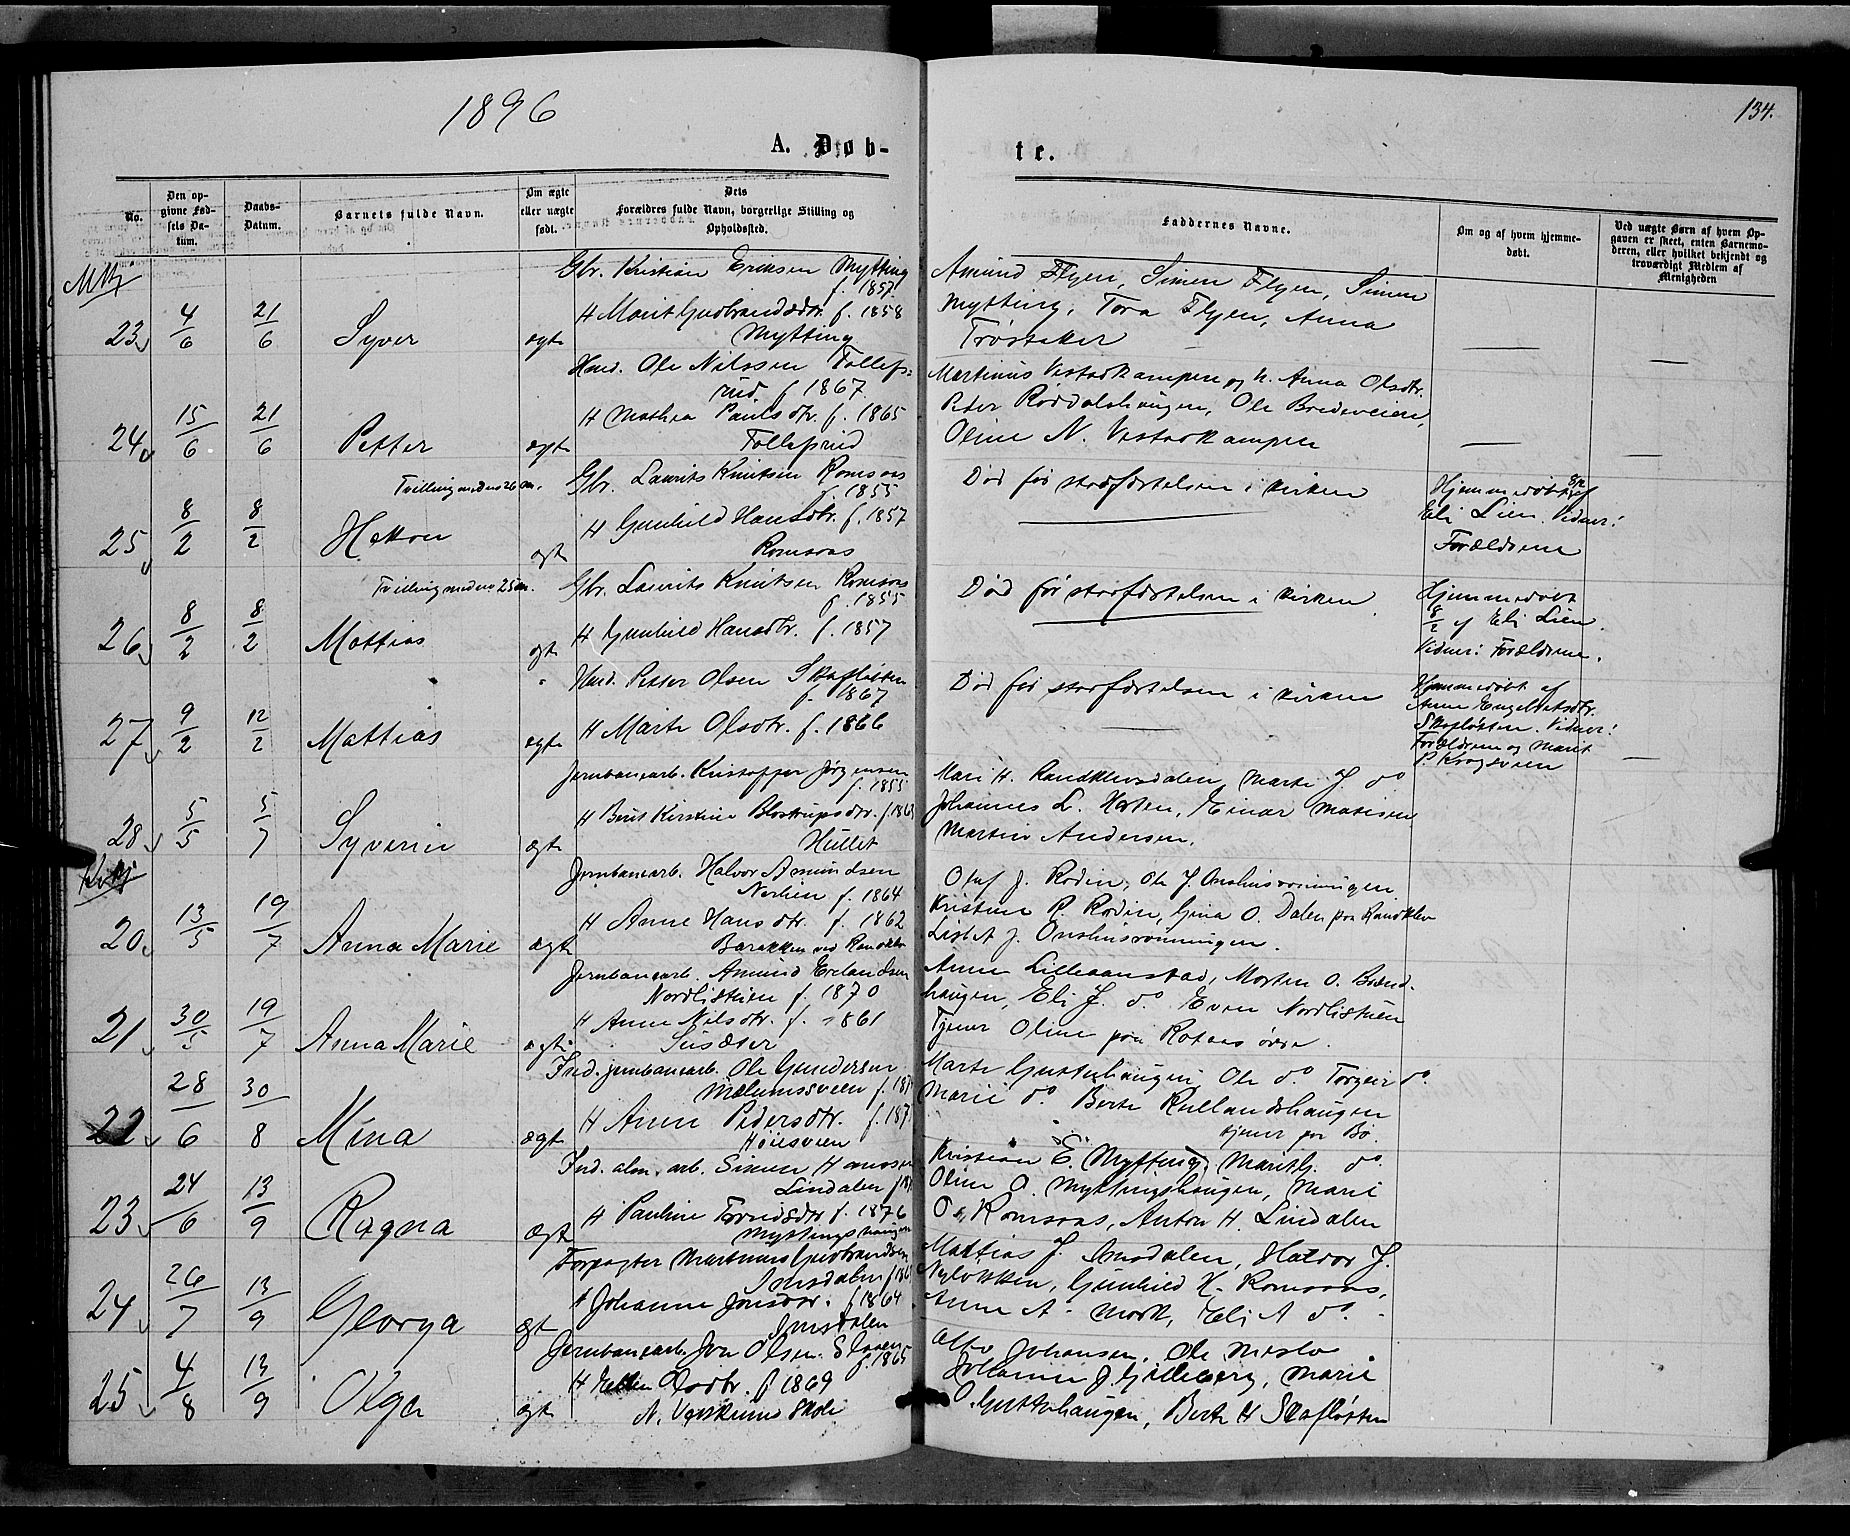 1896
134.
A. Døb-
te.
No.
Den op-
givne Fød-
sels Da-
tum.
Daabs-
Datum.
Barnets fulde Navn.
Om ægte
eller uægte
født.
Dets
Forældres fulde Navn, borgerlige Stilling og
Opholdssted.
Faddernes Navne.
Om og af hvem hjemme-
døbt.
Ved uægte Børn af hvem Op-
gaven er skeet, enten Barnemo-
deren, eller hvilket bekjendt og
troværdigt Medlem af
Menigheden
Mk
23 4/6 21/6 Syver ægte
Gbr. Kristian Eriksen Mytting
f. 1857.
H Marit Gudbrandsdtr. f. 1858
Mytting
Amund Flyen, Simen Flyen, Simen
Mytting, Tora Flyen, Anna
Trøstaker
24 15/6 21/6 Petter ægte
Husd. Ole Nilssen Tollefs=
rud. f 1867.
H Mathea Paulsdtr. f. 1865
Tollefsrud
Martinus Vestadkampen og h. Anna Olsdtr.
Peter Røddalshaugen, Ole Bredeveien,
Oline N. Vestadkampen
25 8/2 8/2 Tvilling med no 26 Hakon ægte
Gbr. Laurits Knutsen Romsaas
f. 1855
H Gunhild Hansdtr. f. 1857
Romsaas
Død før stadfæstelsen i kirken
Hjemmedøbt 8/2 af
Eli Lien. Vidner:
Forældrene
26 8/2 8/2 Tvilling med no 25 Mattias ægte
Gbr. Laurits Knutsen Romsaas
f. 1855
H Gunhild Hansdtr. f. 1857
Død før stadfæstelsen i kirken.
Hjemmedøbt
8/2 af Eli Lien.
Vidner: Forældrene.
27 9/2 12/2 Mattias ægte
Husd. Petter Olsen Skafløtten
f. 1867
H Marte Olsdtr. f. 1866
Død før stadfæstelsen i kirken
Hjemmedøbt af
Anne Engebretsdtr.
Skafløtten. Vidner:
Forældrene og Marit
P. Kragsveen
28 5/5 5/7 Syverin ægte
Jernbanearb. Kristoffer Jørgensen
f. 1855
H Berit Kirstine
Hullet
Mari H. Randklevsdalen, Marte J. do
Johannes L. Horten, Einar Madisen
Martin Andersen.
Kvkj
20 13/5 19/7 Anna Marie ægte
Jernbanearb. Halvor Amundsen
f. 1864
H Anne Hansdtr. f. 1862
Barakken ved Randklev
Olaf J. Rodin, Ole J. Onshusvoiningen
Kristine R. Rodin, Gina O. Dalen paa Randklev
Lisbet J. Onshusvoiningen.
21 30/5 19/7 Anna Marie ægte
Jernbanearb. Amund Erlandsen
Nordlistuen f. 1870
H Anne Nilsdtr. f. 1861
Anne Lilleaanstad, Morten O. Brænd-
haugen, Eli J. do Even Nordlistuen
Tjener Oline paa
22 28/6 30/8 Mina ægte
Ind. jernbanearb. Ole Gundersen
Mælumsveen
H Anne Pedersdtr.
Marte Gutterhaugen, Ole do Torgeir do.
Marie do. Berte Rullandshaugen
tjener paa Bø.
23 24/6 13/9 Ragna ægte
Ind. alm. arb. Simen Hansen
Lindalen
H Pauline Trondsdtr f. 1876
Myttingshaugen
Kristian E. Mytting, Marit G. do.
Oline O. Myttingshaugen, Marie
O. Romsaas, Anton H. Lindalen
24 26/7 13/9 Georga ægt
Forpagter Martinus Gudbrandsen
Imsdalen
H Johanne Jonsdtr. f 1864
Imsdalen
Mattias J. Imsdalen, Halvor J.
Nyløkken, Gunhild H. Romsaas,
Anne A. Mork, Eli A do.
25 4/8 13/9 Olga ægt
Jernbanearb. Jon Olsen Slaaen
f. 1865
f 1869
Johansen, Ole Meslo
Johanne J Gilleberg, Marie
O. Gutterhaugen, Berte H Skafløtten